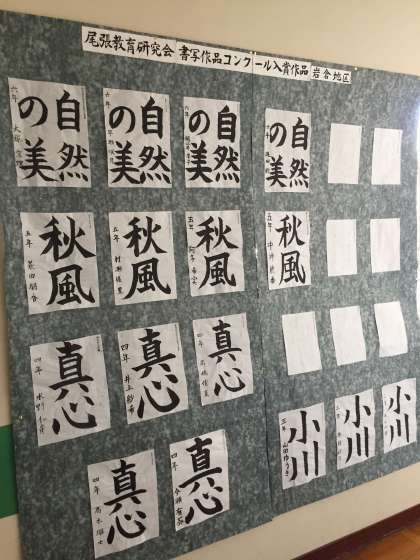 尾張教育研究会 書写作品コンクール入賞作品 岩倉地区
自然の美
六年
自然の美
六年
自然の美
六年
自然の美
六年
秋風
五年
秋風
五年
秋風
五年
秋風
五年
真心
四年
真心
四年 井上
真心
四年
小川
三年 山田ゆうき
小川
三年
小川
三年
真心
四年
真心
四年